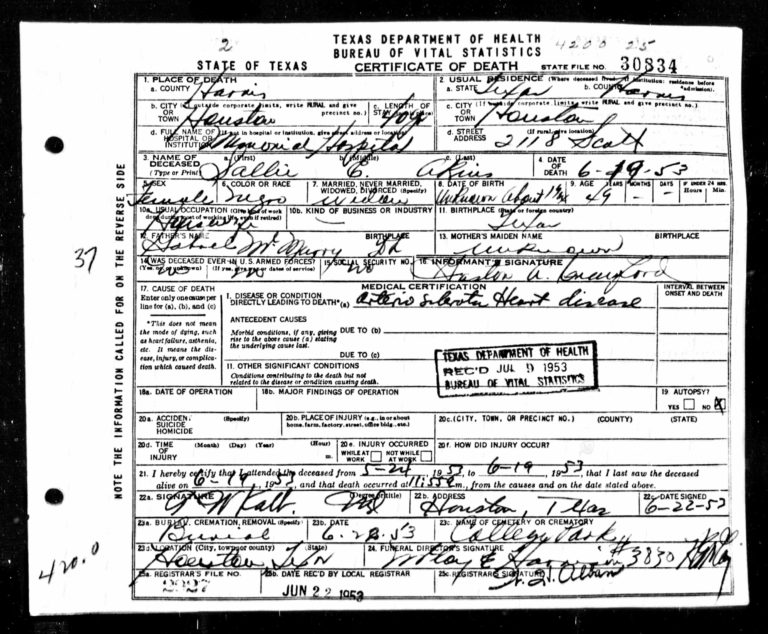 2
TEXAS DEPARTMENT OF HEALTH
BUREAU OF VITAL STATISTICS
4200 25
STATE OF TEXAS
CERTIFICATE OF DEATH
STATE FILE NO. 30834
1. PLACE OF DEATH
a. COUNTY Harris
2. USUAL RESIDENCE (Where deceased lived. If institution: residence before admission).
a. STATE Texas b. COUNTY Harris
b. CITY (If outside corporate limits, write RURAL and give precinct no.)
OR TOWN Houston
c. LENGTH OF STAY
c. CITY (If outside corporate limits, write RURAL and give precinct no.)
OR TOWN Houston
d. FULL NAME OF (If not in hospital or institution, give street address or location)
HOSPITAL OR INSTITUTION Memorial Hospital
d. STREET ADDRESS (If rural, give location)
2118 Scott
3. NAME OF DECEASED (Type or Print)
a. (First) Sallie b. (Middle) C. c. (Last) Akins
4. DATE OF DEATH 6-19-53
5. SEX Female
6. COLOR OR RACE Negro
7. MARRIED, NEVER MARRIED, WIDOWED, DIVORCED (Specify) Widow
8. DATE OF BIRTH Unknown About
9. AGE YEARS 49 MONTHS - DAYS - IF UNDER 24 HRS. Hours Min.
10a. USUAL OCCUPATION (Give kind of work done during most of working life, even if retired)
Housewife
10b. KIND OF BUSINESS OR INDUSTRY
11. BIRTHPLACE (State or foreign country)
Texas
12. FATHER'S NAME BIRTHPLACE
13. MOTHER'S MAIDEN NAME BIRTHPLACE
unknown
14. WAS DECEASED EVER IN U.S. ARMED FORCES?
(Yes, no, or unknown) (If yes, give war or dates of service)
15. SOCIAL SECURITY NO.
no
16. INFORMANT'S SIGNATURE
Crawford
17. CAUSE OF DEATH
Enter only one cause per line for (a), (b), and (c)
MEDICAL CERTIFICATION
INTERVAL BETWEEN ONSET AND DEATH
I. DISEASE OR CONDITION DIRECTLY LEADING TO DEATH* (a) Arterio Sclerotic Heart disease
*This does not mean the mode of dying, such as heart failure, asthenia, etc. It means the disease, injury, or complication which caused death.
ANTECEDENT CAUSES
Morbid conditions, if any, giving rise to the above cause (a) stating the underlying cause last.
DUE TO (b)
DUE TO (c)
11. OTHER SIGNIFICANT CONDITIONS
Conditions contributing to the death but not related to the disease or condition causing death.
TEXAS DEPARTMENT OF HEALTH
REC'D JUL 9 1953
BUREAU OF VITAL STATISTICS
18a. DATE OF OPERATION
18b. MAJOR FINDINGS OF OPERATION
19. AUTOPSY?
YES NO X
20a. ACCIDENT SUICIDE HOMICIDE (Specify)
20b. PLACE OF INJURY (e.g., in or about home, farm, factory, street, office bldg., etc.)
20c. (CITY, TOWN, OR PRECINCT NO.) (COUNTY) (STATE)
20d. TIME OF INJURY (Month) (Day) (Year) (Hour) m.
20e. INJURY OCCURRED
WHILE AT WORK NOT WHILE AT WORK
20f. HOW DID INJURY OCCUR?
21. I hereby certify that I attended the deceased from 5-24, 1953, to 6-19, 1953, that I last saw the deceased
alive on 6-19, 1953, and that death occurred at 11:55P m., from the causes and on the date stated above.
22a. SIGNATURE (Degree or title) MD
22b. ADDRESS Houston, Texas
22c. DATE SIGNED 6-22-53
23a. BURIAL, CREMATION, REMOVAL (Specify) Burial
23b. DATE 6-22-53
23c. NAME OF CEMETERY OR CREMATORY College Park
23d. LOCATION (City, town or county) (State)
Houston Tex
24. FUNERAL DIRECTOR'S SIGNATURE
#3830
25a. REGISTRAR'S FILE NO.
25b. DATE REC'D BY LOCAL REGISTRAR
JUN 22 1953
25c. REGISTRAR'S SIGNATURE
NOTE THE INFORMATION CALLED FOR ON THE REVERSE SIDE
37
420.0